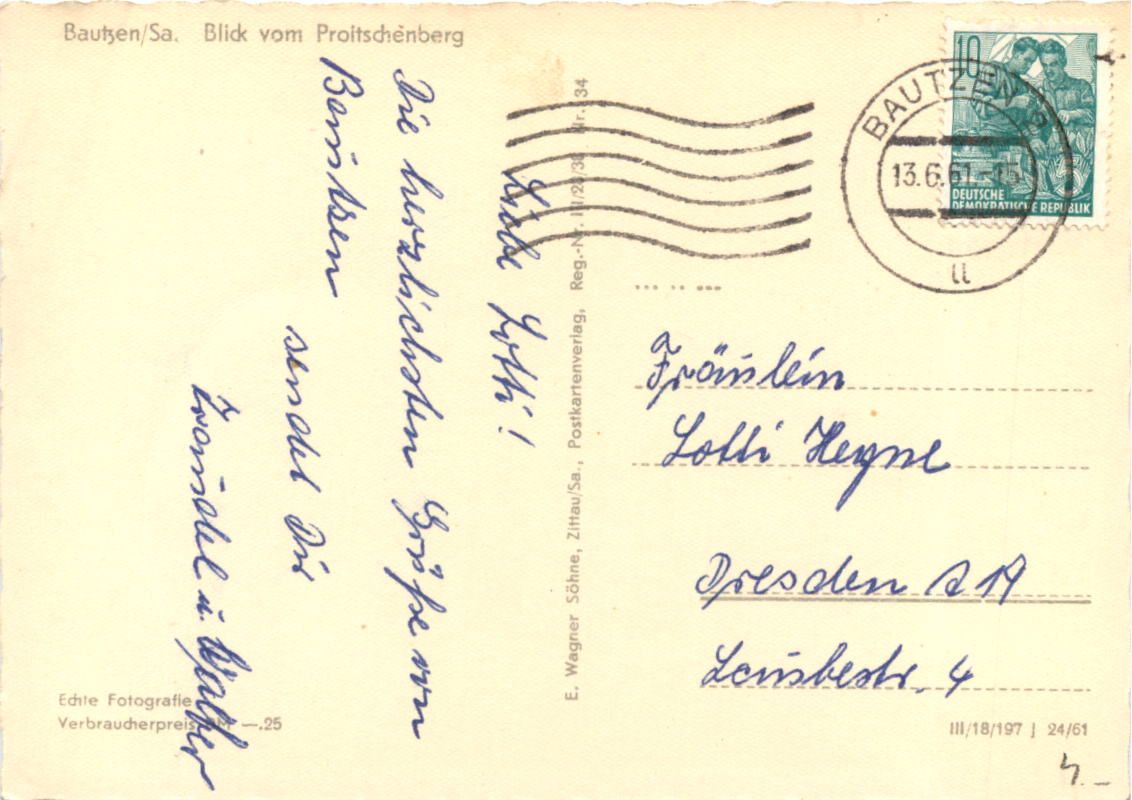 Bautzen/Sa. Blick vom Proitschenberg
Liebe Lotti!
Die herzlichsten Grüße von
Bautzen
sendet Dir
Traudel u. Walter
E. Wagner Söhne, Zittau/Sa., Postkartenverlag, Reg.-Nr. III/28/38 Nr. 34
10
DEUTSCHE
DEMOKRATISCHE REPUBLIK
BAUTZEN
13.6.61
u
Fräulein
Lotti Heyne
Dresden A 19
Laubestr. 4
Echte Fotografie
Verbraucherpreis DM —.25
III/18/197 J 24/61
4.–